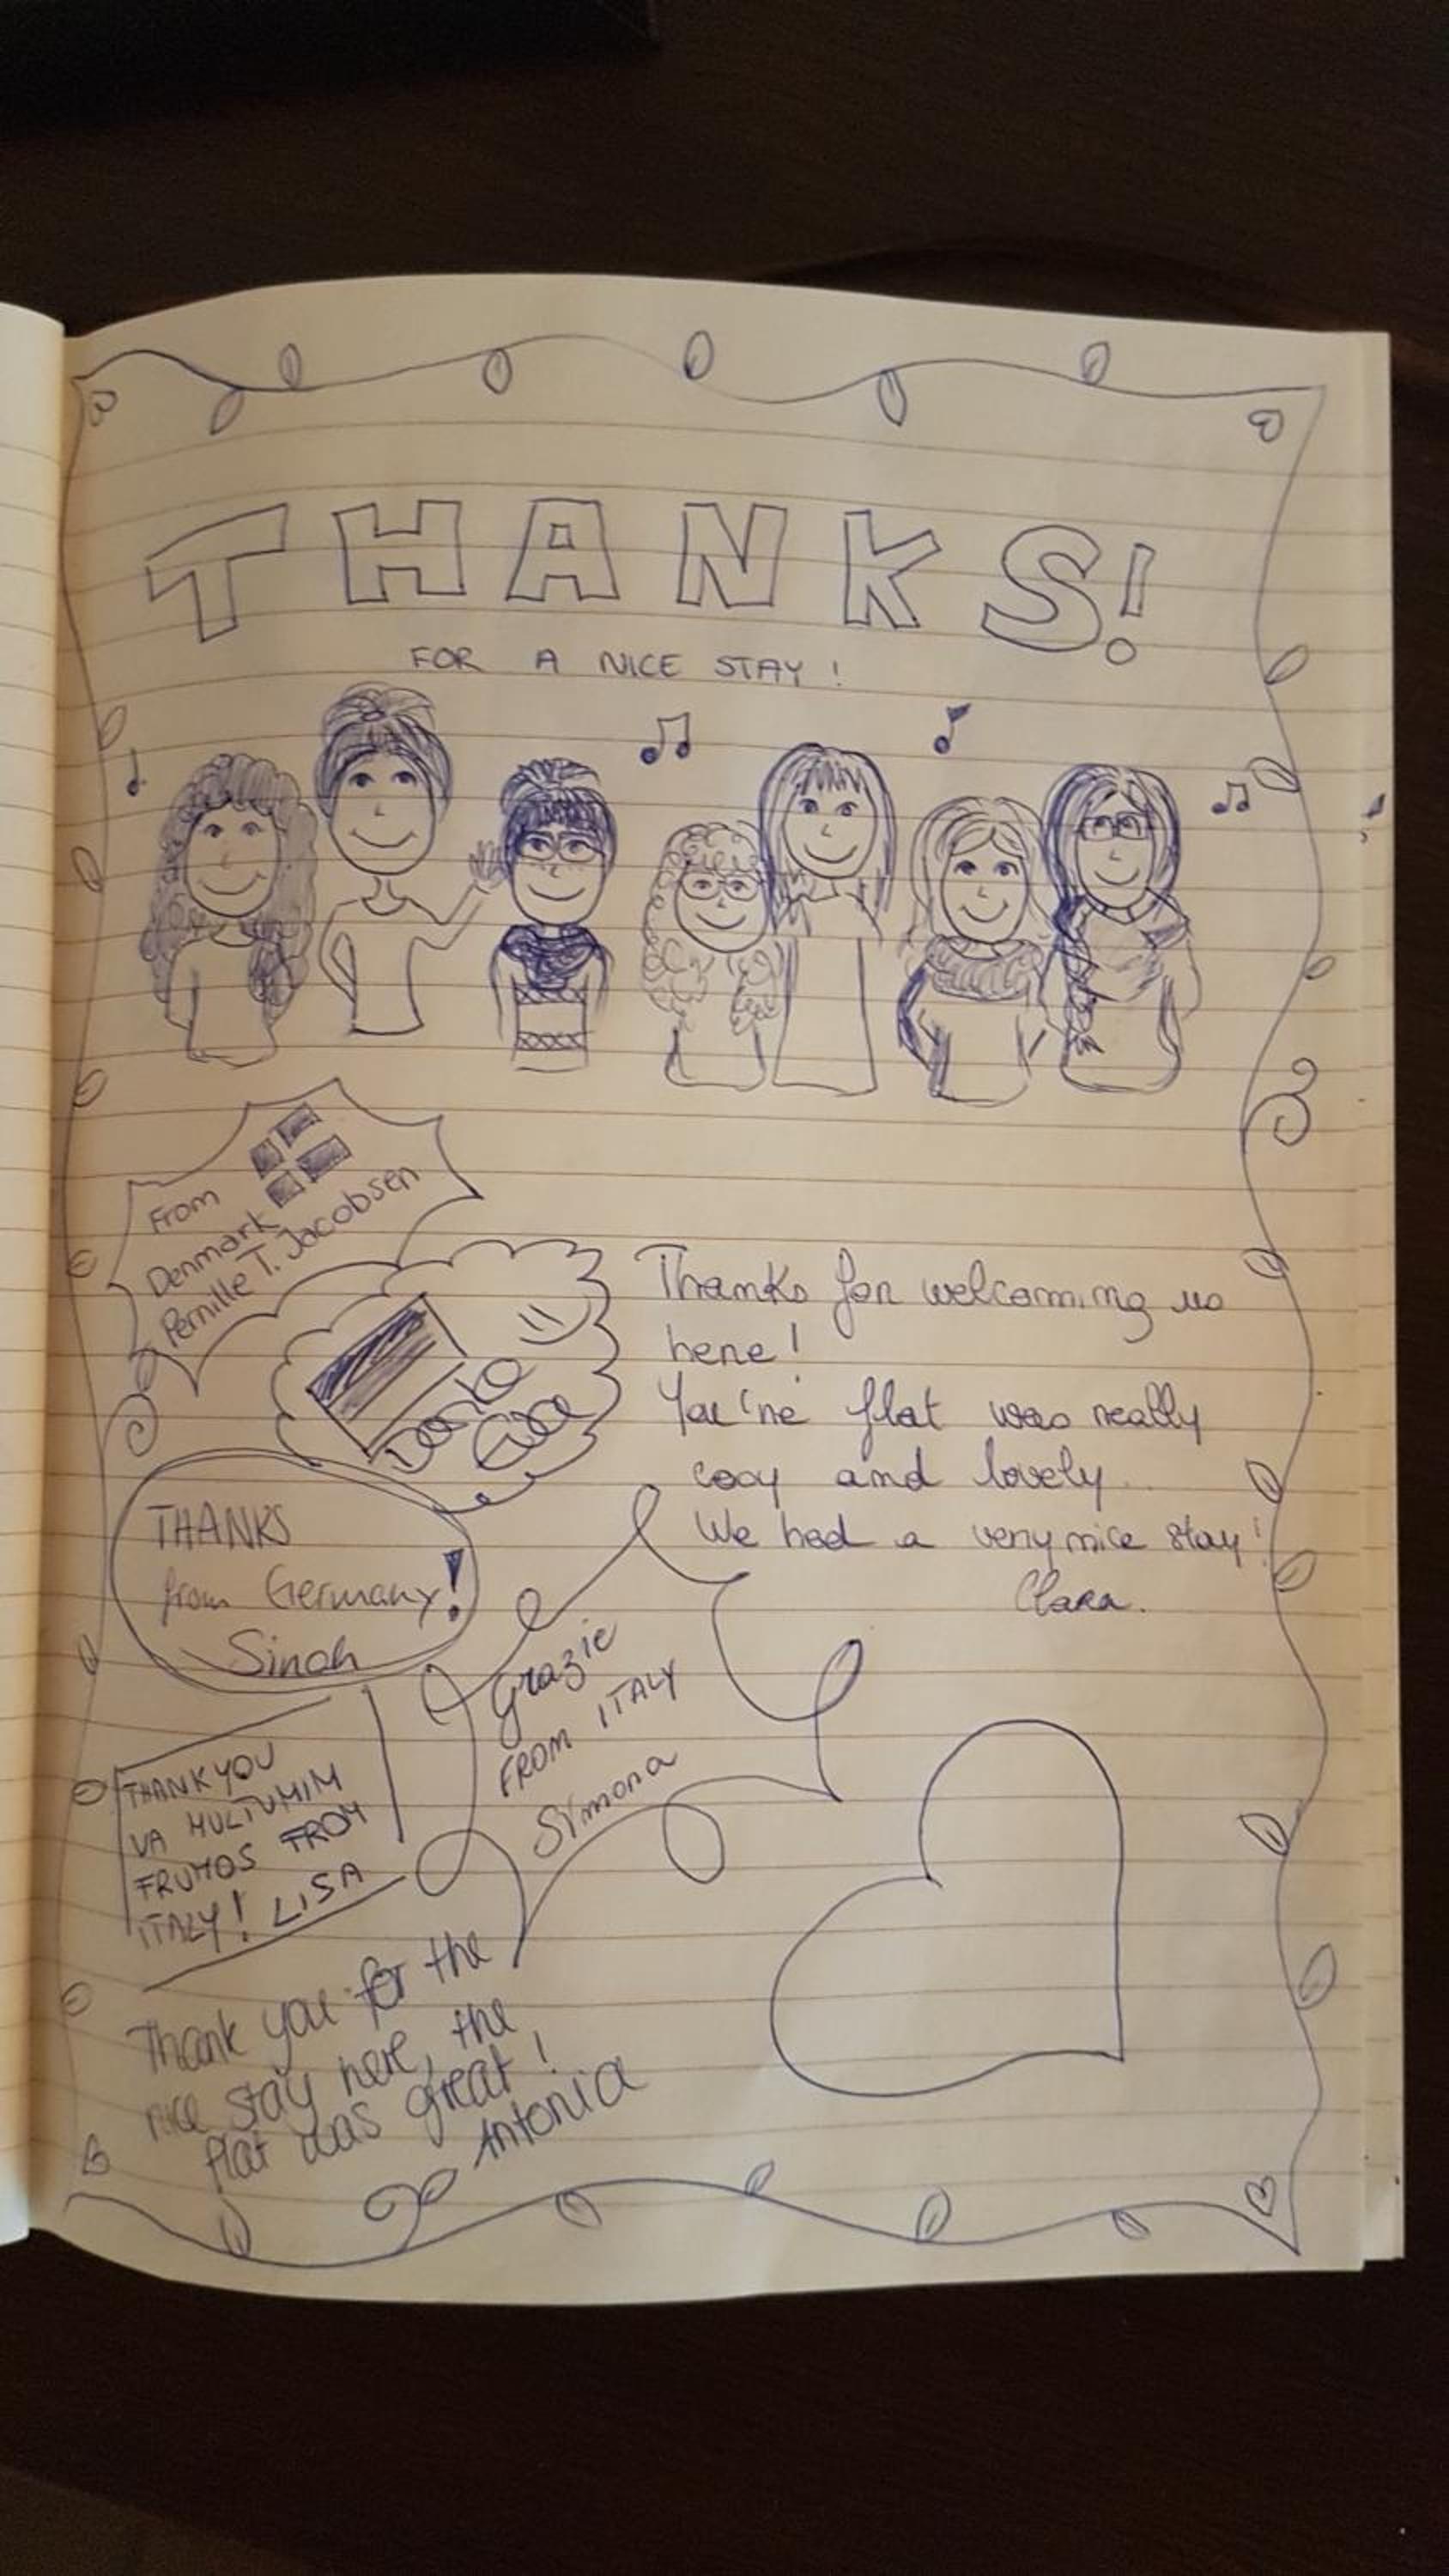 THANKS!
FOR A NICE STAY!
From
Denmark
Pernille T. Jacobsen
Thanks for welcoming us
here!
You're flat was really
cosy and lovely.
We had a very nice stay!
Clara.
THANKS
from Germany!
Sinah
Grazie
FROM ITALY
Simona
THANK YOU
VA MULTUMIM
FRUMOS FROM
ITALY! LISA
Thank you for the
nice stay here, the
flat was great!
Antonia